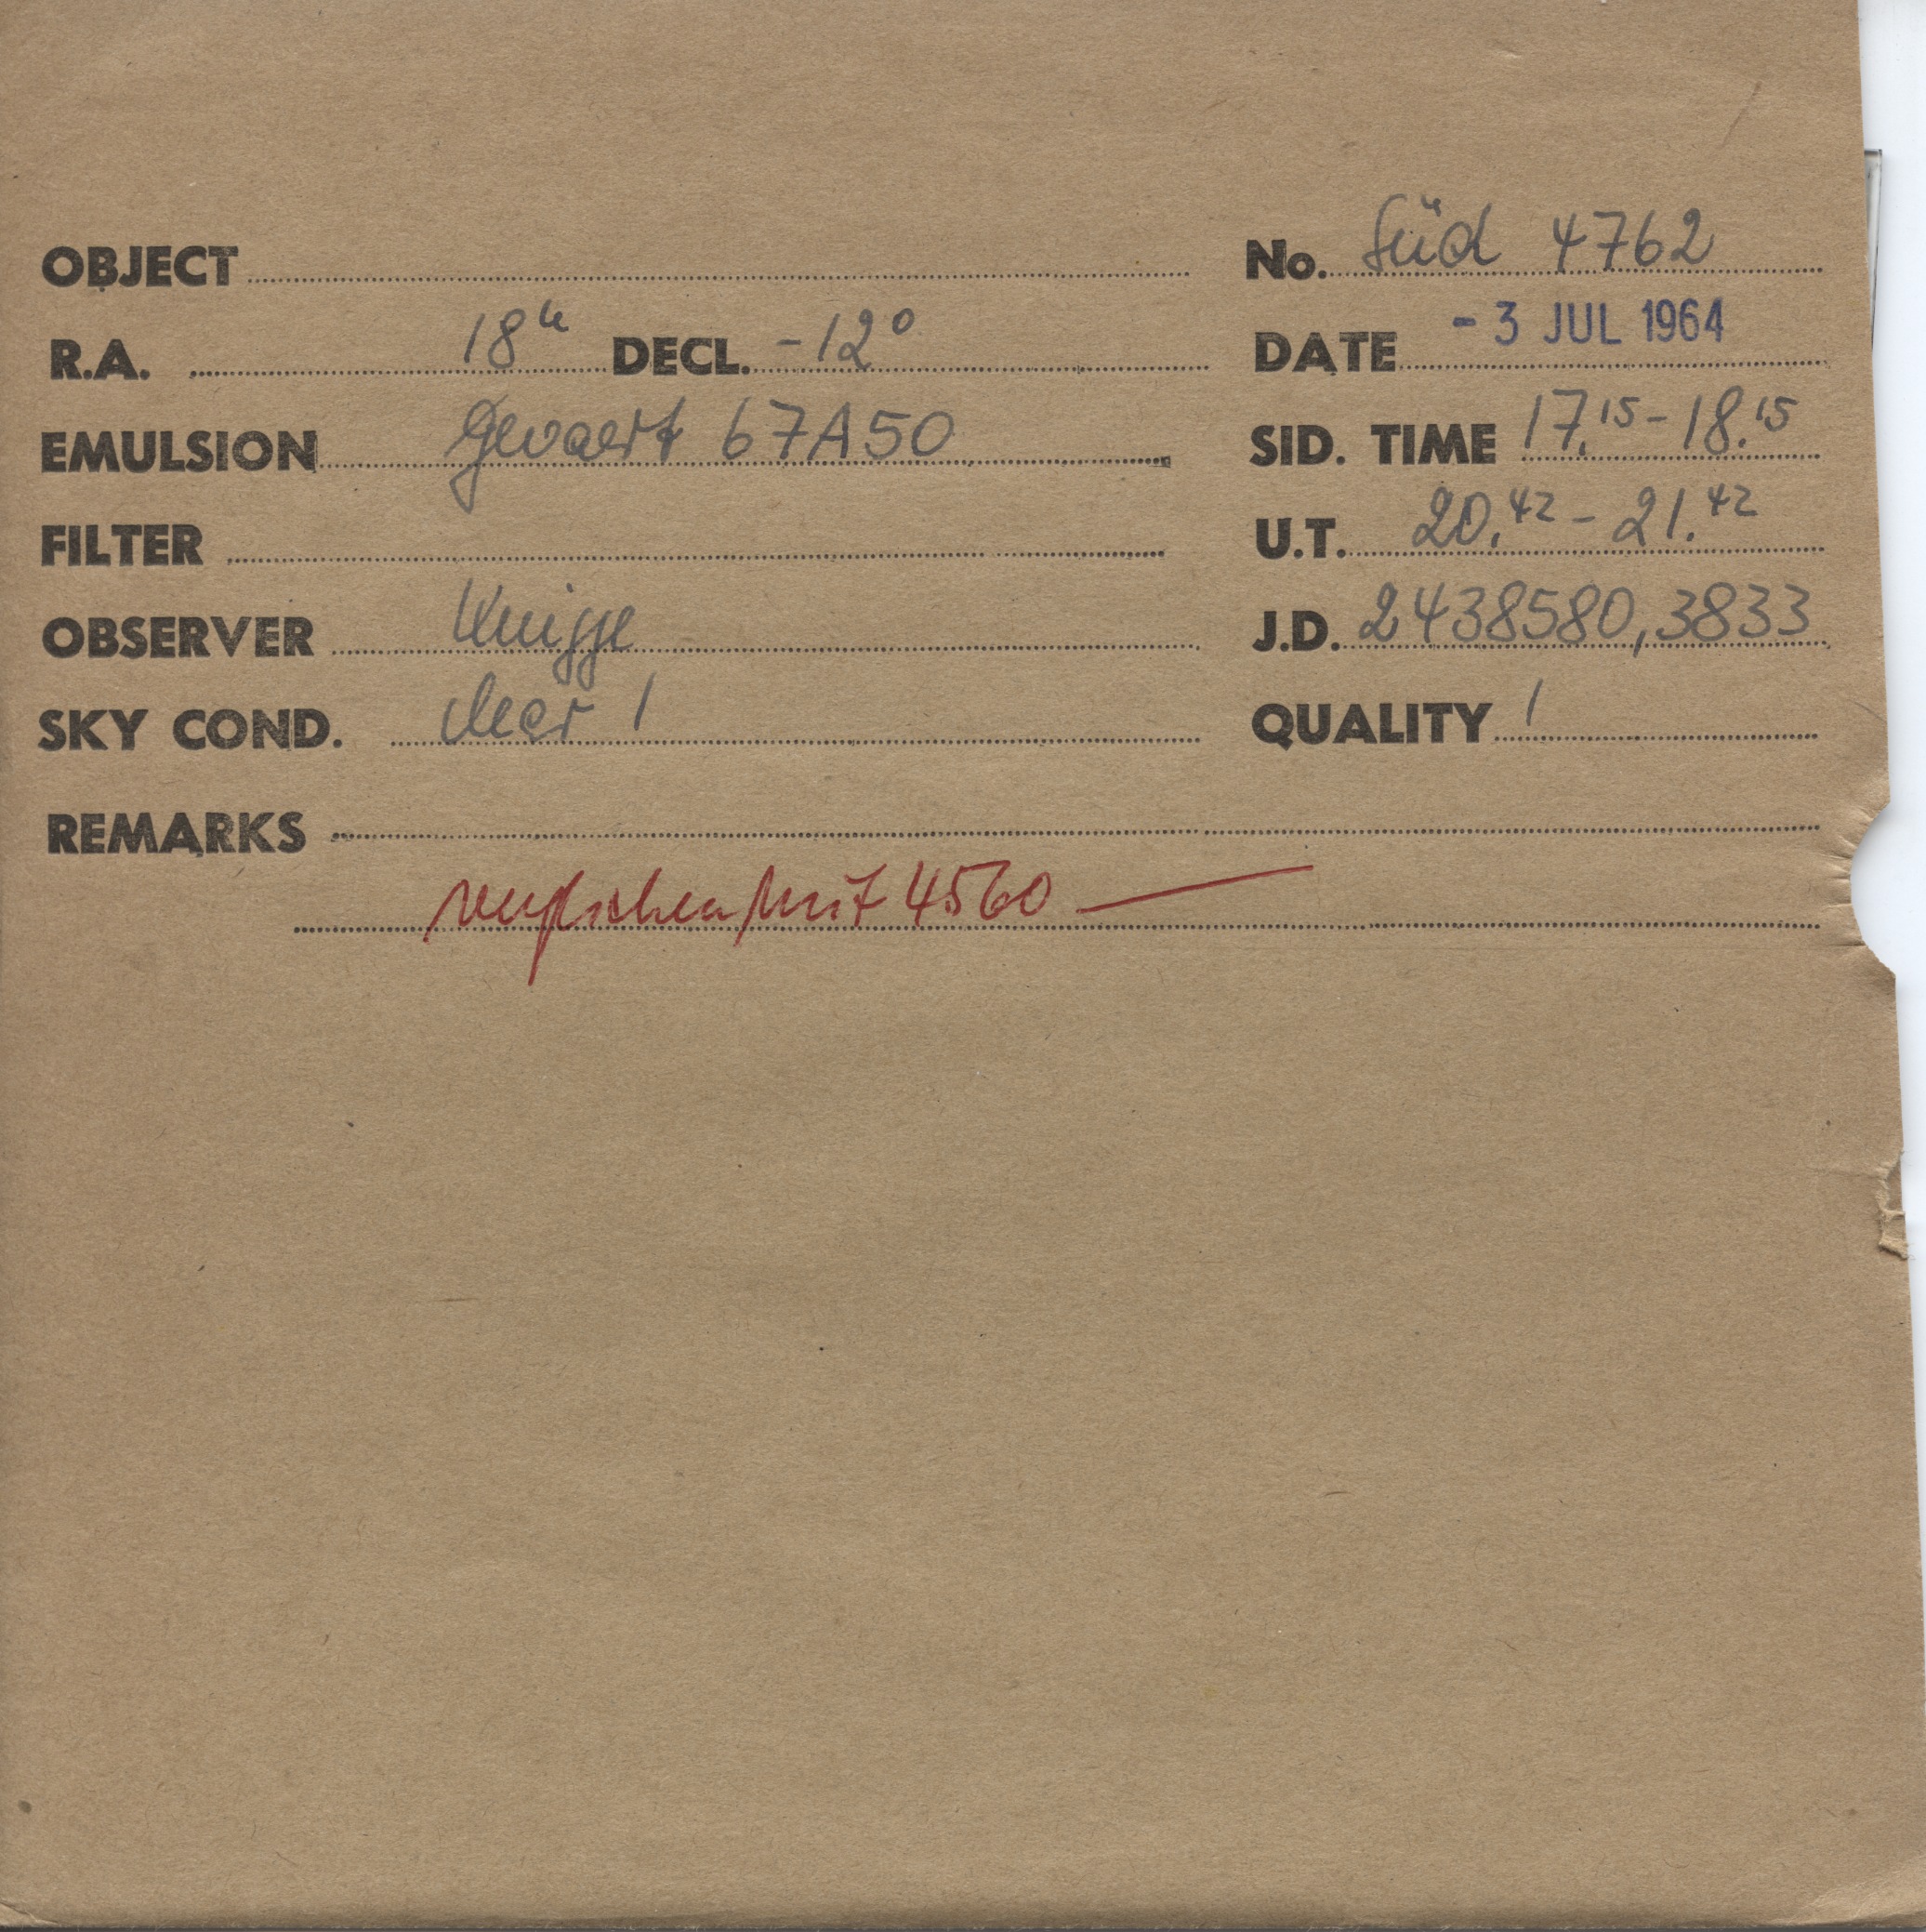 OBJECT
No. Süd 4762
R.A. 18h DECL. -12°
DATE -3 JUL 1964
EMULSION Gevaert 67A50
SID. TIME 17.15 - 18.15
FILTER
U.T. 20.42 - 21.42
OBSERVER Knigge
J.D. 2438580,3833
SKY COND. clear 1
QUALITY 1
REMARKS
mit 4560 —